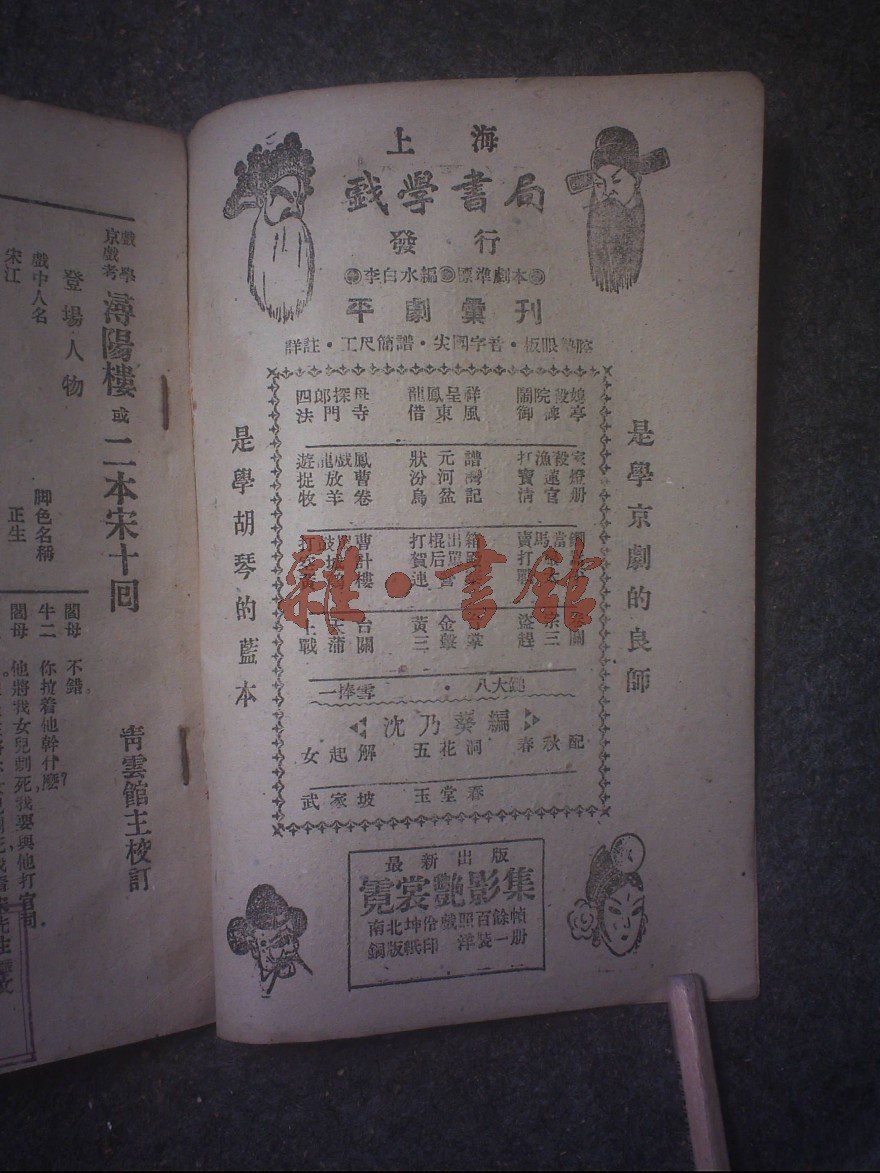 上海
戲學書局
發行
李白水編 標準劇本
平劇彙刊
詳註・工尺簡譜・尖團字音・板眼墊腔
是學京劇的良師
是學胡琴的藍本
四郎探母 龍鳳呈祥 鬧院殺媳
法門寺 借東風 御碑亭
遊龍戲鳳 狀元譜 打漁殺家
捉放曹 汾河灣 寶蓮燈
牧羊卷 烏盆記 清官册
打鼓罵曹 打棍出箱 賣馬當鐧
上天台 黃金臺 盜宗卷
戰蒲關 三擊掌
一捧雪・八大鎚
沈乃葵編
女起解 五花洞 春秋配
武家坡 玉堂春
最新出版
霓裳艷影集
南北坤伶戲照百餘幀
銅版紙印 洋裝一册
雜・書館
戲學
京戲考
潯陽樓 或 二本宋十回
青雲館主校訂
登場人物
戲中人名 脚色名稱
宋江 正生
閻母 不錯。
牛二 你拉着他幹什麼?
閻母 他將我女兒刺死,我要與他打官司。